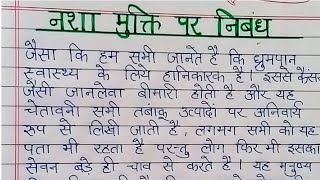 नशा मुक्ति पर निबंध
जैसा कि हम सभी जानते है कि धुम्रपान
स्वास्थ्य के लिये हानिकारक है। इससे कैंसर
जैसी जानलेवा बीमारी होती है और यह
चेतावनी सभी तंबाकू उत्पादों पर अनिवार्य
रूप से लिखी जाती है, लगभग सभी को यह
पता भी रहता है परन्तु लोग फिर भी इसका
सेवन बडे ही चाव से करते है। यह मनुष्य